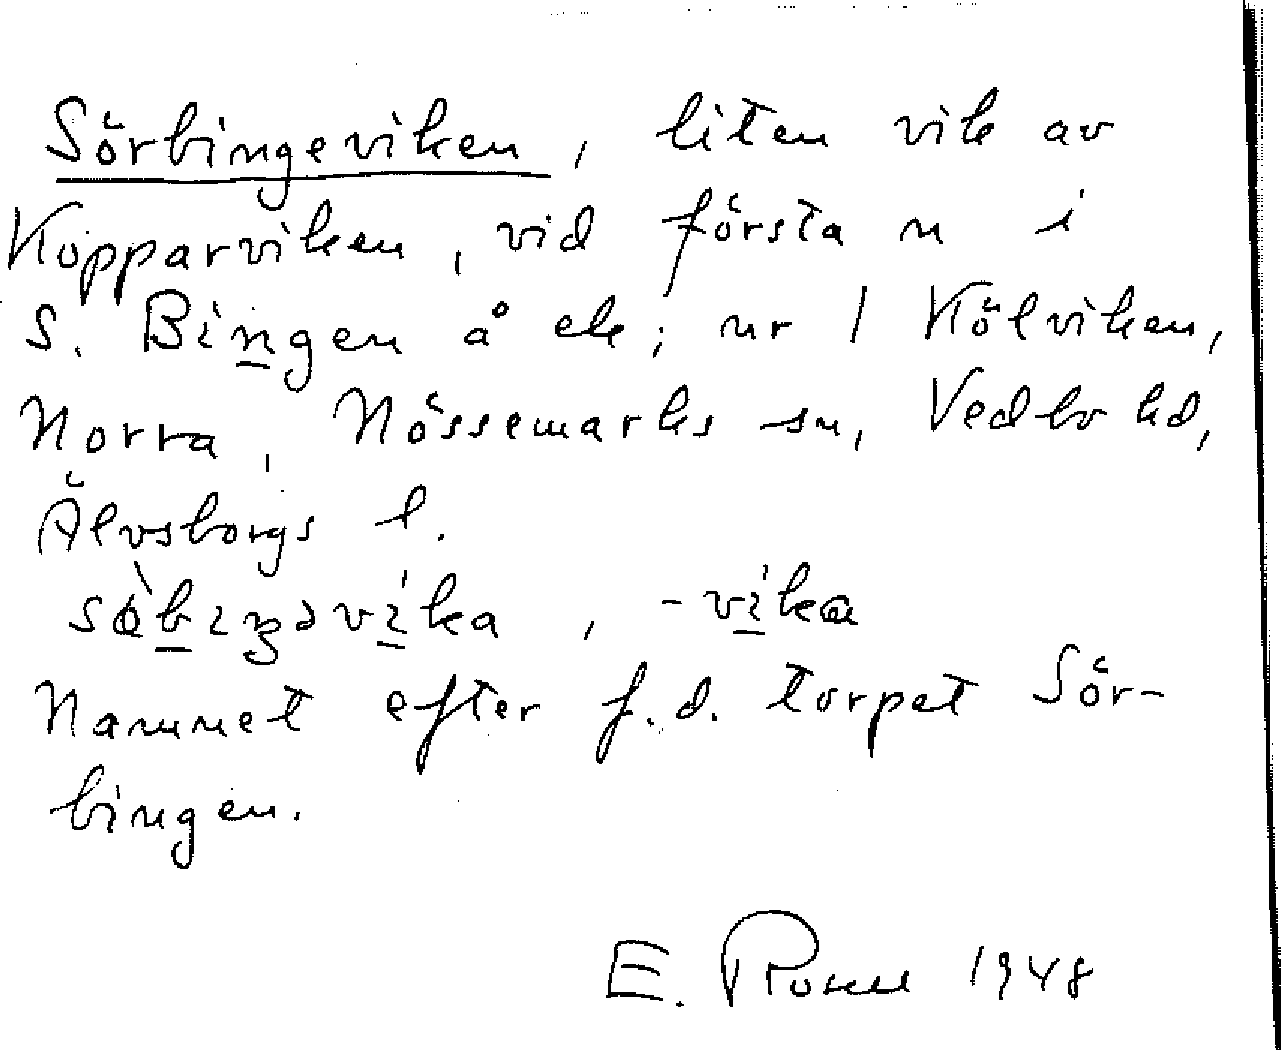 Sörbingeviken, liten vik av
Kopparviken, vid första n i
S. Bingen å ek; nr 1 Kölviken,
Norra, Nössemarks sn, Vedbo hd,
Älvsborgs l.
, -vika
Namnet efter f.d. torpet Sör-
bingen.
E. Rosell 1948